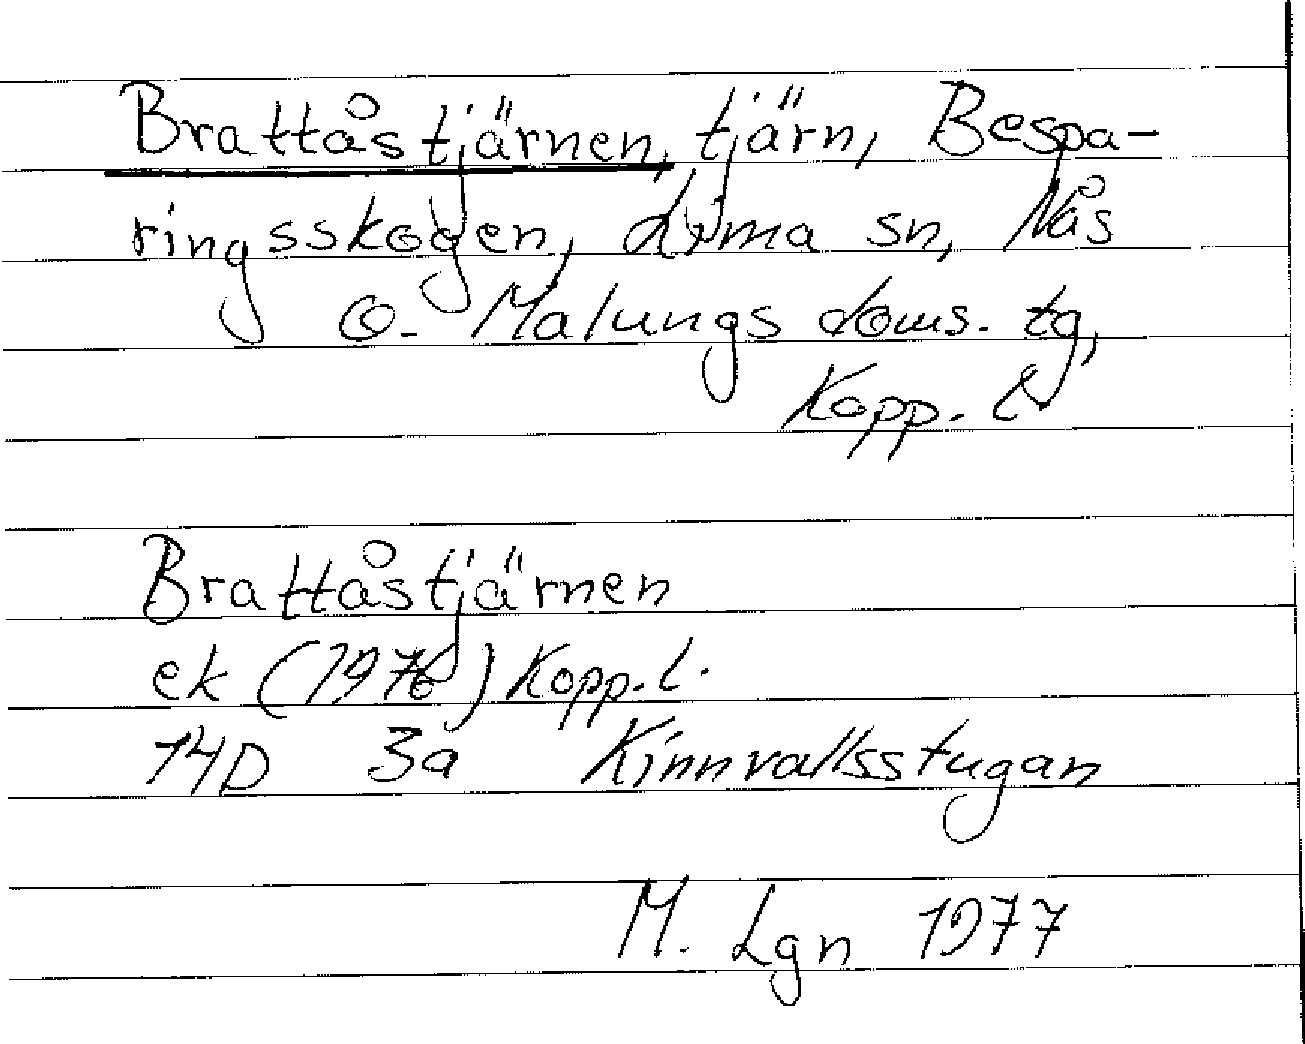 Brattåstjärnen, tjärn, Bespa-
ringsskogen, Lima sn, Nås
o. Malungs doms. tg,
Kopp. l.
Brattåstjärnen
ek (1976) Kopp. l.
14D 3a Kinnvallsstugan
M. Lgn 1977